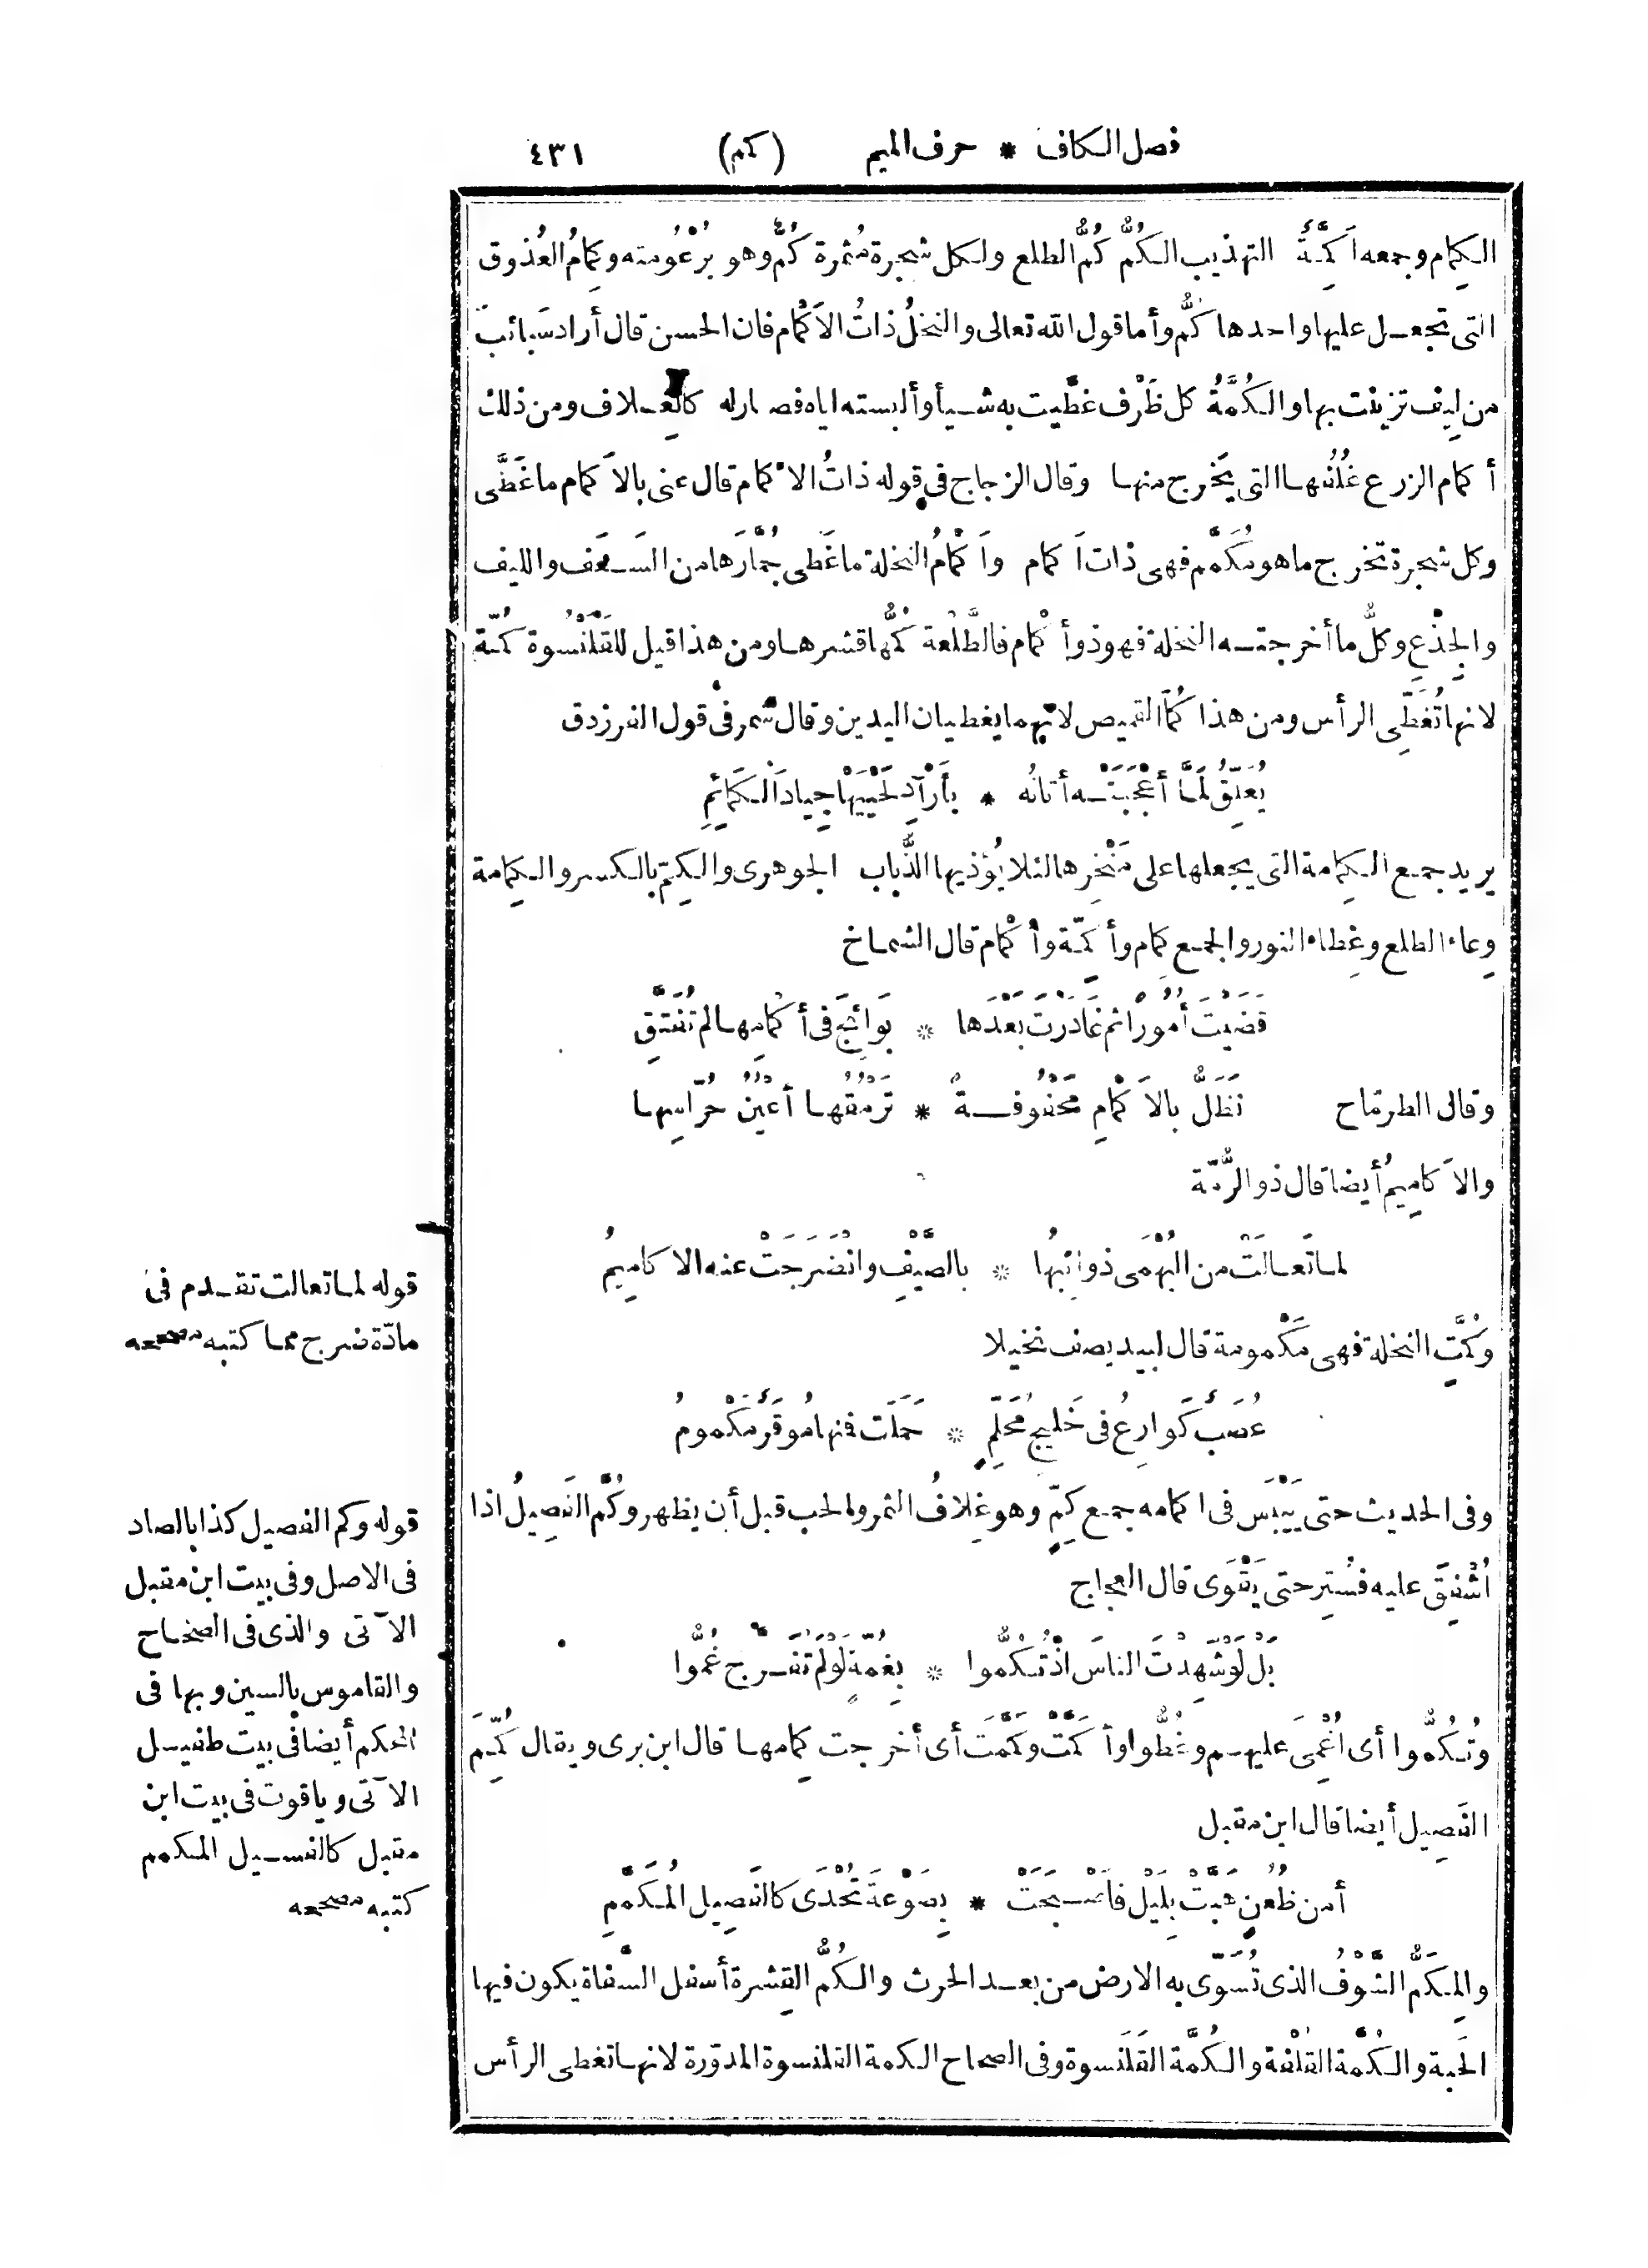 فصل الكاف * حرف الميم (كمم) ٤٣١
الكِمام وجمعه أَكِمَّةٌ التهذيب الكُمُّ كُمُّ الطلع ولكل شجرة مُثمرة كُمٌّ وهو بُرْعُومته وكِمامُ العُذوق
التى تجعل عليها واحدها كُمٌّ وأما قول الله تعالى والنخلُ ذاتُ الاَكْمام فان الحسن قال أراد سَبائبَ
من لِيف تزينت بها والكُمَّةُ كل ظَرْف غطَّيت به شيأ وألبسته اياه فصار له كالغِلاف ومن ذلك
أكمام الزرع غُلُفها التى يَخرج منها وقال الزجاج فى قوله ذاتُ الاكمام قال عنى بالاَكمام ما غَطَّى
وكل شجرة تخرج ما هو مُكَمَّم فهى ذات اَكمام واَكْمامُ النخلة ما غَطى جُمَّارَها من السَعَف والليف
والجِذْعِ وكلُّ ما أخرجته النخلة فهو ذو أكْمام فالطَّلْعة كُمُّها قشرها ومن هذا قيل للقَلَنْسُوة كُمّة
لانها تُغَطِّى الرأس ومن هذا كُمّا القميص لانهما يغطيان اليدين وقال شمر فى قول الفرزدق
يُعَلِّقُ لَمَّا أَعْجَبَتْه أتانُه * بأَرْآدِ لَحْيَيْها جِيادَ الكَمائِمِ
يريد جمع الكِمامة التى يجعلها على مَنْخِرها لئلا يُؤذيها الذُّباب الجوهرى والكِمّ بالكسر والكِمامة
وِعاء الطلع وغِطاء النور والجمع كِمام وأَكِمّة وأكْمام قال الشماخ
قَضَيْتَ أُمُورًا ثم غادَرْتَ بَعْدَها * بَوائِجَ فى أكْمامِها لم تُفَتَّقِ
وقال الطرمّاح تَظَلُّ بالاَكْمامِ مَحْفُوفةً * تَرْمُقُها أَعْيُنُ حُرّاسِها
والاَكاميمُ أيضا قال ذو الرُّمّة
لما تَعالَتْ من البُهْمَى ذوائِبُها * بالصَّيْفِ وانْضَرَجَتْ عنه الاكامِيمُ
وكُمَّتِ النخلة فهى مَكْمومة قال لبيد يصف نخيلا
عُصَبٌ كَوارِعُ فى خَليجِ مُحَلِّمٍ * حَمَلَت فنها مُوقَرٌ مَكْمومُ
وفى الحديث حتى يَيْبَس فى اكمامه جمع كِمٍّ وهو غِلافُ الثمر والحب قبل أن يظهر وكُمَّ الفَصِيلُ اذا
اُشْفِقَ عليه فسُتِر حتى يَقْوَى قال العجاج
بَلْ لَوْ شَهِدْتَ الناسَ اذْ تُكُمُّوا * بِغُمّةٍ لو لم تُفَرَّج غُمُّوا
وتُكُمُّوا أى اُغْمِىَ عليهم وغُطُّوا وأَكَمَّتْ وكَمَّمَت أى أخرجت كِمامها قال ابن برى ويقال كُمِّمَ
الفَصِيل أيضا قال ابن مقبل
أمن ظُعُنٍ هَبَّتْ بِلَيْل فأصْبَحَتْ * بِصَوْعةَ تُحْدَى كالفَصِيل المُكَمَّمِ
والمِكَمُّ الشَّوْفُ الذى تُسَوَّى به الارض من بعد الحرث والكُمُّ القِشرة أسفل السَّفاة يكون فيها
الحَبة والكُمَّة القُلْفة والكُمَّة القَلَنْسوة وفى الصحاح الكمة القلنسوة المدوّرة لانها تغطى الرأس
قوله لما تعالت تقدم فى
مادّة ضرج مما كتبه مصححه
قوله وكم الفصيل كذا بالصاد
فى الاصل وفى بيت ابن مقبل
الآتى والذى فى الصحاح
والقاموس بالسين وبها فى
المحكم أيضا فى بيت طفيل
الآتى وياقوت فى بيت ابن
مقبل كالفسيل المكمم
كتبه مصححه